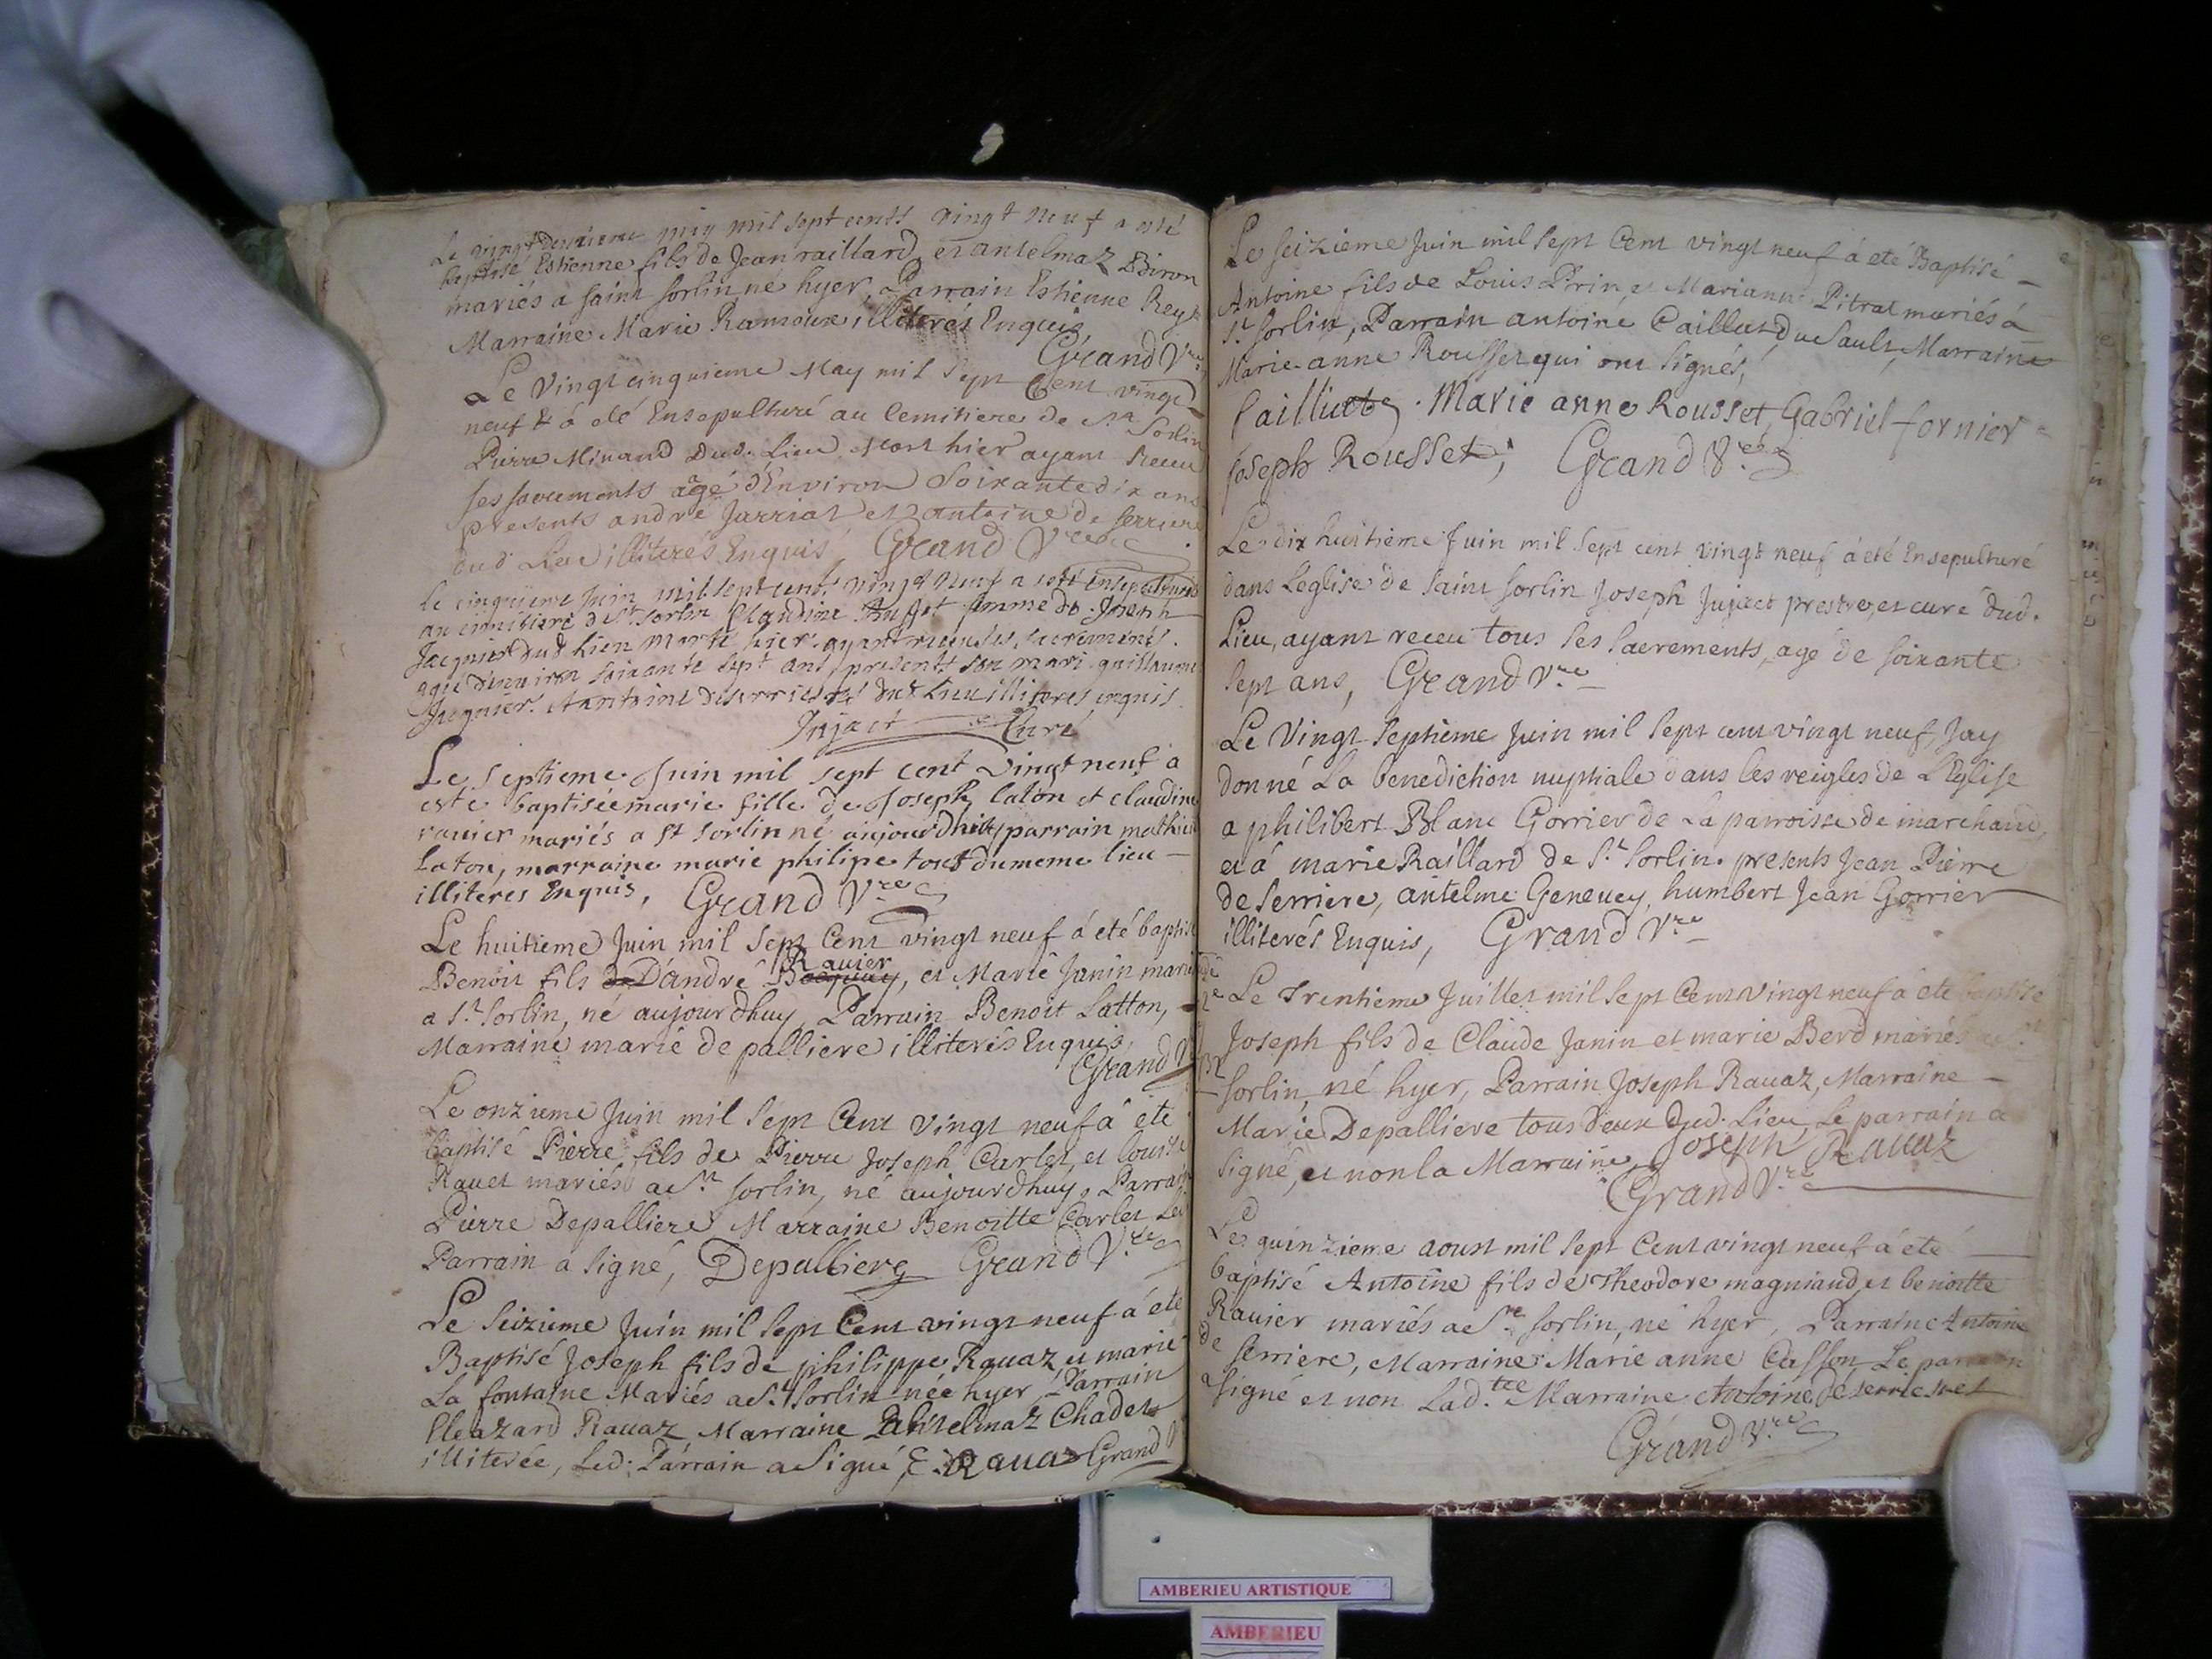 Le vingt deuxieme may mil sept cents vingt neuf a esté
baptisé Estienne fils de Jean raillard et antelmaz Biron
mariés a saint sorlin né hyer Parrain Estienne Rey
Marraine Marie illiterés Enquis
Grand Vre
Le Vingt cinquieme May mil sept Cent vingt
neuf à été Ensepulturé au Cemitiere de St Sorlin
Pierre Minand dud. Lieu mort hier ayant receu
ses sacrements agé d'Environ Soixante dix ans
presents andré Jarriat et antoine de serriere
dud Lieu illiterés Enquis, Grand Vre
Le cinquieme Juin mil sept cent vingt neuf a esté ensepulturée
au cimitiere de St sorlin Claudine femme de Joseph
Jacquier dud Lieu morte hier ayant receu les sacrements
agée d'environ soixante sept ans, presents son mari guillaume
Jacquier Antoine deserriere dud Lieu illiteres enquis
Jujact Curé
Le septieme Juin mil sept cent vingt neuf a
esté baptisée marie fille de Joseph laton et claudine
rauier mariés a st sorlin né aujourdhuy parrain mathieu
laton, marraine marie philipe tous du meme lieu —
illiteres Enquis, Grand Vre
Le huitieme Juin mil sept Cent vingt neuf á été baptisé
Rauier
Benoit fils D'andré, et Marie Janin mariés
a St. Sorlin, né aujourdhuy, Parrain Benoit Latton,
Marraine marie de palliere illiterés Enquis,
Grand V
Le onzieme Juin mil sept Cent vingt neuf a été
baptisé Pierre fils de Pierre Joseph Carlet, et louise
Rauet mariés a St sorlin, né aujourdhuy, Parrain
Pierre Depalliere Marraine Benoitte Carlet Le
Parrain a signé, Depalliere Grand Vre
Le Seizieme Juin mil sept Cent vingt neuf á été
Baptisé Joseph fils de philippe Rauaz et marie
La fontaine Mariés a St. Sorlin née hyer Parrain
Eleazard Rauaz Marraine Antelmaz Chadet
illiterée, Led. Parrain a signé E. Rauaz Grand V
Le seizieme Juin mil sept Cent vingt neuf á eté Baptisé —
Antoine fils de Louis Prin et Marianne Pitrat mariés á
St. Sorlin, Parrain antoine Caillat du Sault, Marraine
Marie-anne Rousset qui ont signés,
Marie anne Rousset, Gabriel fornier
joseph Rousset; Grand Vre
Le dix huitieme Juin mil sept cent vingt neuf á été Ensepulturé
dans Leglise de saint sorlin Joseph Jujact prestre, et curé dud.
Lieu, ayant receu tous ses sacrements, agé de soixante
sept ans, Grand Vre
Le Vingt septieme Juin mil sept cent vingt neuf, Jay
donné La benediction nuptiale dans les reigles de L'Eglise
a philibert Blanc Gorrier de La parroisse de marchand,
et á marie Raillard de St. Sorlin. presents Jean Pierre
de Serriere, antelme Geneuey, humbert Jean Gorrier
illiterés Enquis, Grand Vre
Le Trentieme Juillet mil sept Cent vingt neuf á été baptisé
Joseph fils de Claude Janin et marie Berd mariés
sorlin, né hyer, Parrain Joseph Rauaz, Marraine —
Marie Depalliere tous deux dud. Lieu, Le parrain a
signé, et non la Marraine, Joseph Rauaz
Grand Vre
Le quinzieme aoust mil sept Cent vingt neuf á été
baptisé Antoine fils de Theodore magniand et benoitte
Rauier mariés a St sorlin, né hyer, Parrain Antoine
de serriere, Marraine Marie anne Casson Le parrain
a signé et non Lad.tte Marraine Antoine
Grand Vre
AMBERIEU ARTISTIQUE
AMBERIEU